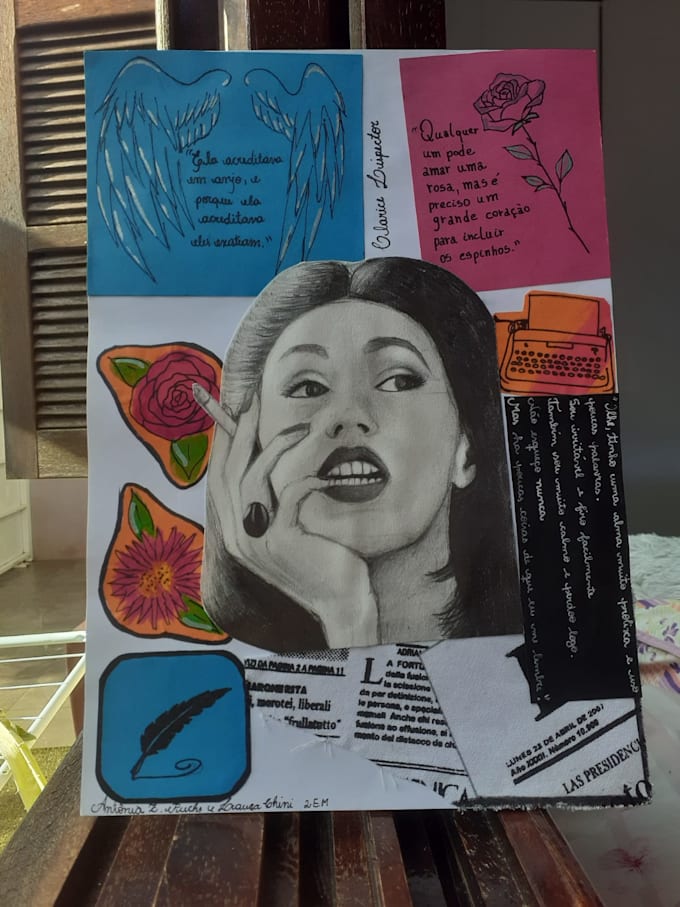 "Ela acreditava
em anjo, e
porque ela
acreditava
eles existiam."
Clarice Lispector
"Qualquer
um pode
amar uma
rosa, mas é
preciso um
grande coração
para incluir
os espinhos."
"Olhe, tenho uma alma muito prolixa e uso
poucas palavras.
Sou irritável e firo facilmente
Também sou muito calmo e perdoo logo.
Não esqueço nunca
Mas há poucas coisas de que eu me lembre."
IZI DA PAGINA 2 A PAGINA 11
MARGHERITA
i, morotei, liberali
"frullatutto"
ADRIA
LA FORT
della fusio
la scissione
da per definizione,
le persone, e special
namenti Anche chi res
fusione so offusione, si
mento del distacco da ch
NICA
LUNES 23 DE ABRIL DE 2001
Año XXXII. Número 10.908
LAS PRESIDENCI
Antônia Z. Fuchs e Luauza Chini 2EM